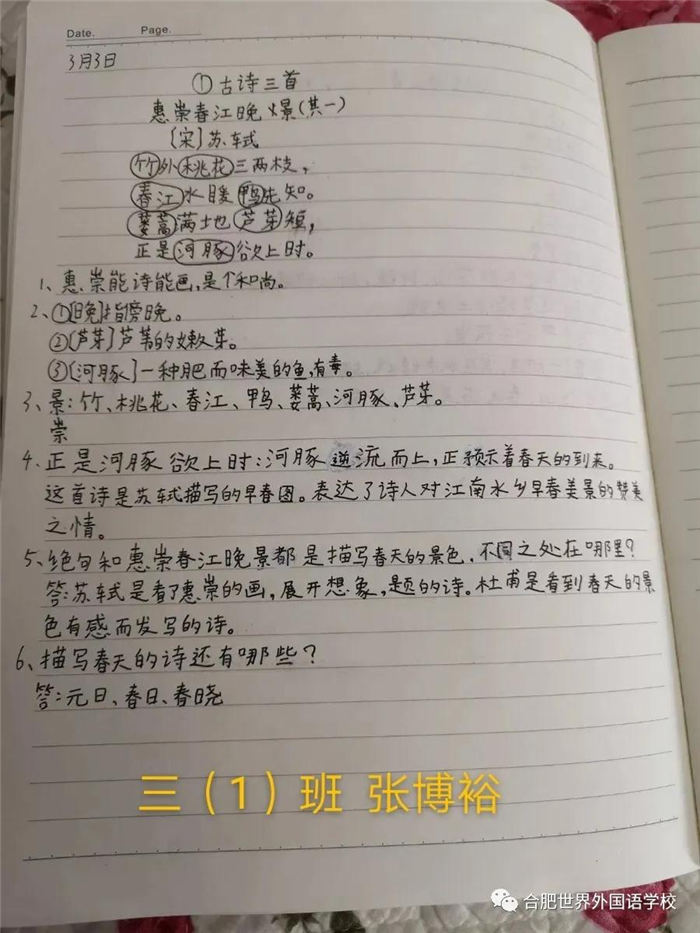 Date.    Page.
3月3日
①古诗三首
惠崇春江晚景(其一)
[宋]苏轼
竹外桃花三两枝,
春江水暖鸭先知。
蒌蒿满地芦芽短,
正是河豚欲上时。
1、惠崇能诗能画,是个和尚。
2、①[晚]指傍晚。
②[芦芽]芦苇的嫩芽。
③[河豚]一种肥而味美的鱼,有毒。
3、景:竹、桃花、春江、鸭、蒌蒿、河豚、芦芽。
崇
4、正是河豚欲上时:河豚逆流而上,正预示着春天的到来。
这首诗是苏轼描写的早春图。表达了诗人对江南水乡早春美景的赞美
之情。
5、绝句和惠崇春江晚景都是描写春天的景色,不同之处在哪里?
答:苏轼是看了惠崇的画,展开想象,题的诗。杜甫是看到春天的景
色有感而发写的诗。
6、描写春天的诗还有哪些?
答:元日、春日、春晓
三(1)班 张博裕
合肥世界外国语学校